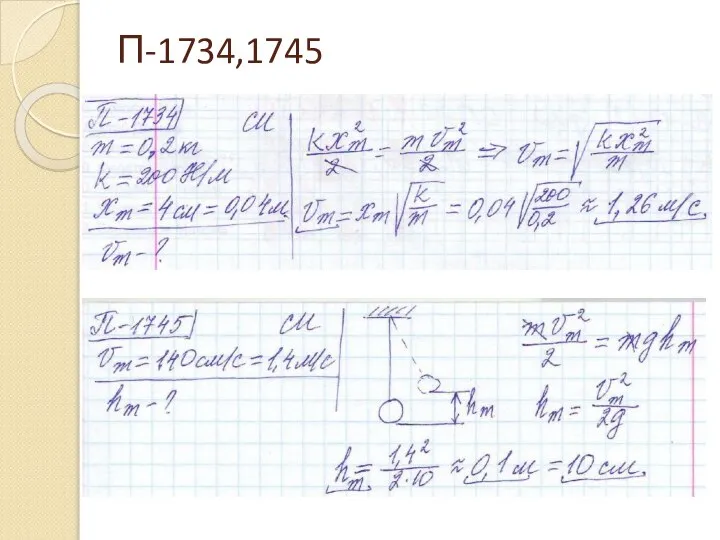 П-1734,1745
П-1734 СИ
m = 0,2 кг
k = 200 Н/м
xm = 4 см = 0,04 м.
vm - ?
kxm²/2 = mvm²/2 => vm = √(kxm²/m)
vm = xm√(k/m) = 0,04√(200/0,2) ≈ 1,26 м/с.
П-1745 СИ
vm = 140 см/с = 1,4 м/с
hm - ?
hm
mvm²/2 = mghm
hm = vm²/2g
hm = 1,4²/2·10 ≈ 0,1 м = 10 см.